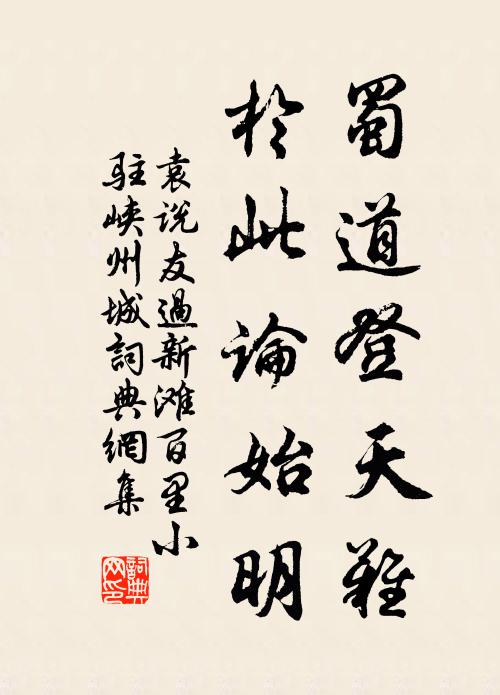 蜀道登天难
於此論始明
袁说友過新滩百里小
駐峡州城詞典網集
詞典网印